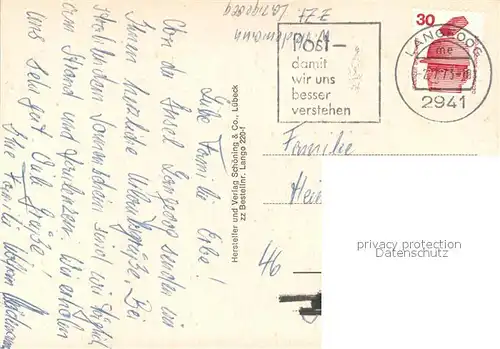 Liebe Familie Erbe!
Von der Insel Langeoog senden wir
Ihnen herzliche Urlaubsgrüße. Bei
strahlendem Sonnenschein sind wir täglich
am Strand und faulenzen. Wir erholen
uns sehr gut. Viele Grüße!
Ihre Familie Wolfram
Hersteller und Verlag Schöning & Co., Lübeck
zz Bestellnr. Lango 220-f
POST –
damit
wir uns
besser
verstehen
30
LANGEOOG
me
2941
Familie
Hei
46
privacy protection
Datenschutz